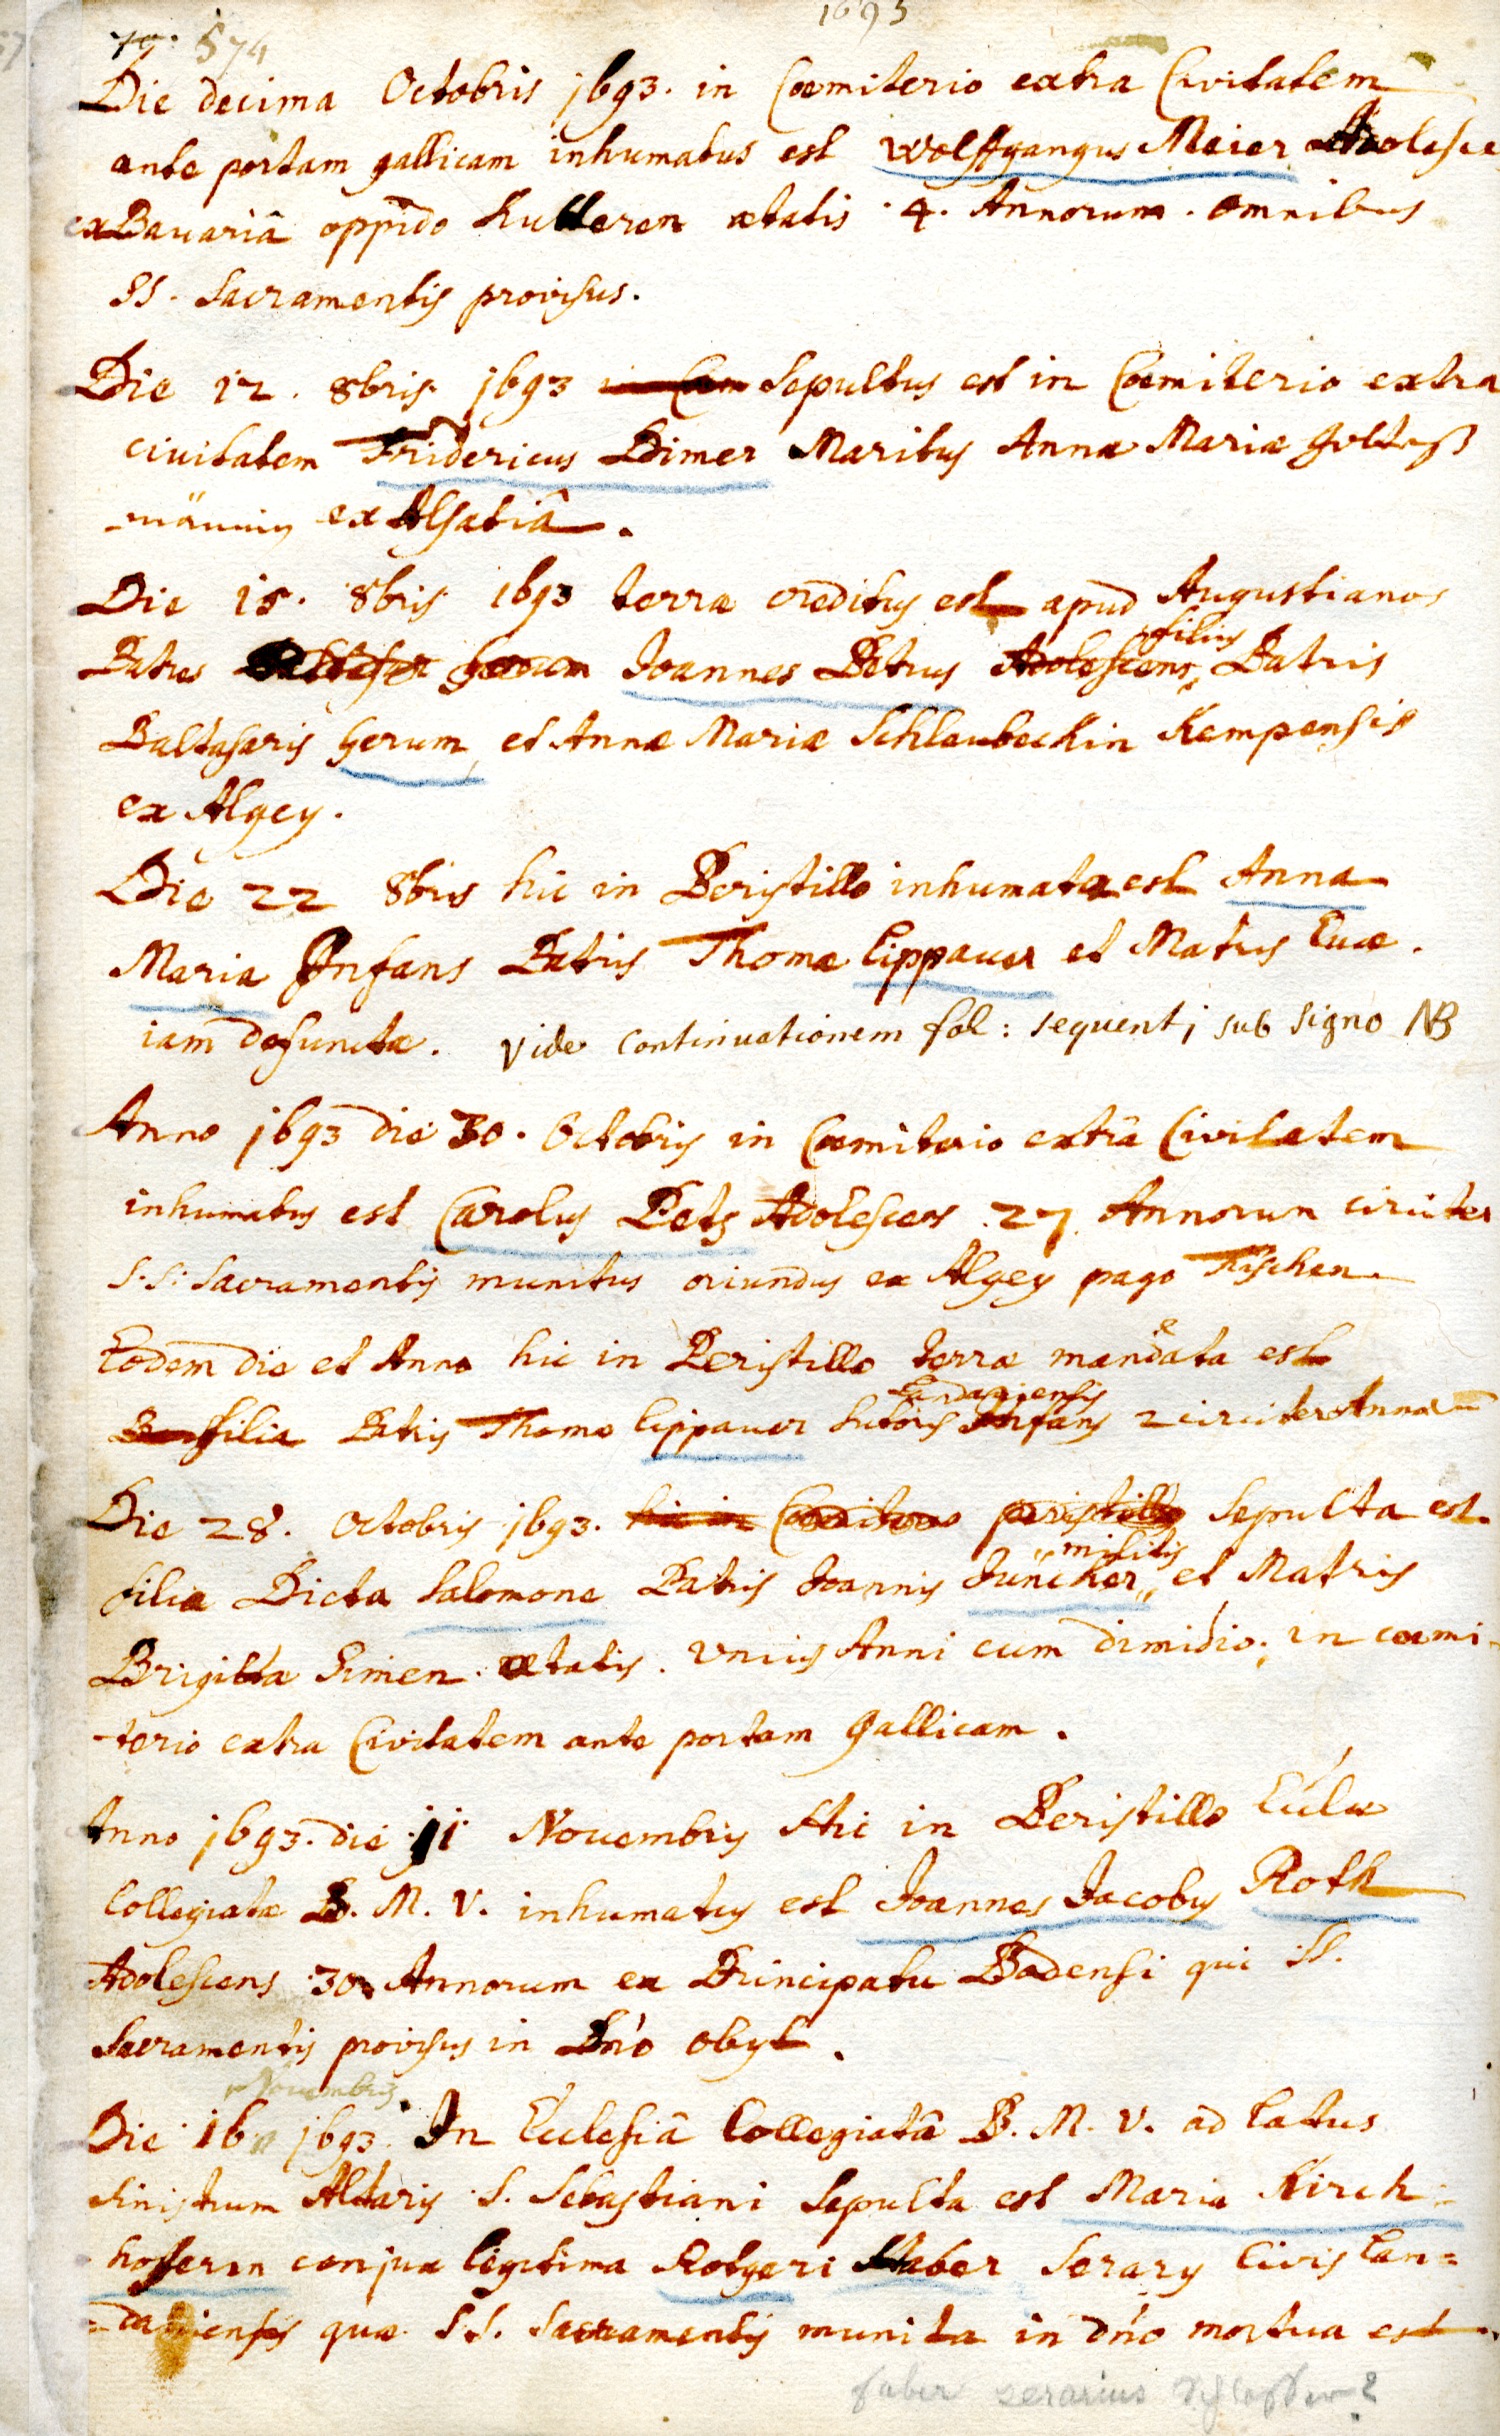 1693
574
Die decima Octobris 1693. in Coemiterio extra Civitatem
ante portam gallicam inhumatus est Wolffgangus Meier Adolesce
ex Bavariâ oppido aetatis 4. Annorum. omnibus
SS. Sacramentis provisus.
Die 12. 8bris 1693 Sepultus est in Coemiterio extra
civitatem Fridericus Dimer Maritus Annae Mariae
ex Alsatiâ.
Die 18. 8bris 1693 terrae creditus est apud Augustianos
filius
Joannes Petrus Adolescens Patris
Baltasaris Gerum et Annae Mariae Schlaubeckin Kempensis
ex Algey.
Die 22 8bris hic in Peristillo inhumata est Anna
Maria Infans Patris Thomae Lippauer et Matris Evae.
iam defunctae. Vide continuationem fol: sequenti sub signo NB
Anno 1693 die 30. Octobris in Coemiterio extra Civitatem
inhumatus est Carolus Petz Adolescens 27 Annorum circiter
S.S. Sacramentis munitus oriundus ex Algey pago Fischen
Eodem die et Anno hic in Peristillo terrae mandata est
Landaviensis
filia Patris Thomae Lippauer Sutoris Infans 2 circiter Annorum
Die 28. Octobris 1693. hic in Coemiterio peristillo Sepulta est.
militis
filia Dicta Salomone Patris Joannis Jüncker et Matris
Brigitta Simen aetatis unius Anni cum dimidio. in coemi-
terio extra Civitatem ante portam gallicam.
Anno 1693. die 11 Novembris Hic in Peristillo Ecclae
Collegiatae B. M. V. inhumatus est Joannes Jacobus Roth
Adolescens 30 Annorum ex Principatu Badensi qui SS.
Sacramentis provisus in Dno obyt.
Novembris
Die 16 1693. In Ecclesiâ Collegiatâ B. M. V. ad latus
sinistrum Altaris S. Sebastiani Sepulta est Maria Kirch=
hofferin conjux legitima Rotgeri Staber Serary Civis Lan=
=daviensis quae S.S. Sacramentis munita in dno mortua est.
faber serarius Schlosser?